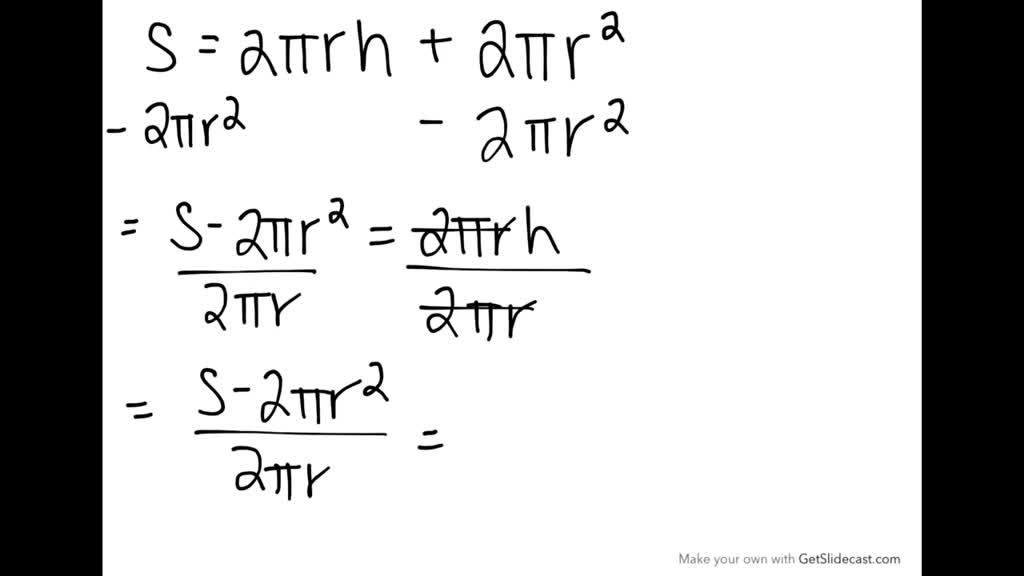 S = 2πrh + 2πr²
- 2πr² - 2πr²
= S - 2πr² / 2πr = 2πrh / 2πr
= S - 2πr² / 2πr =
Make your own with GetSlidecast.com